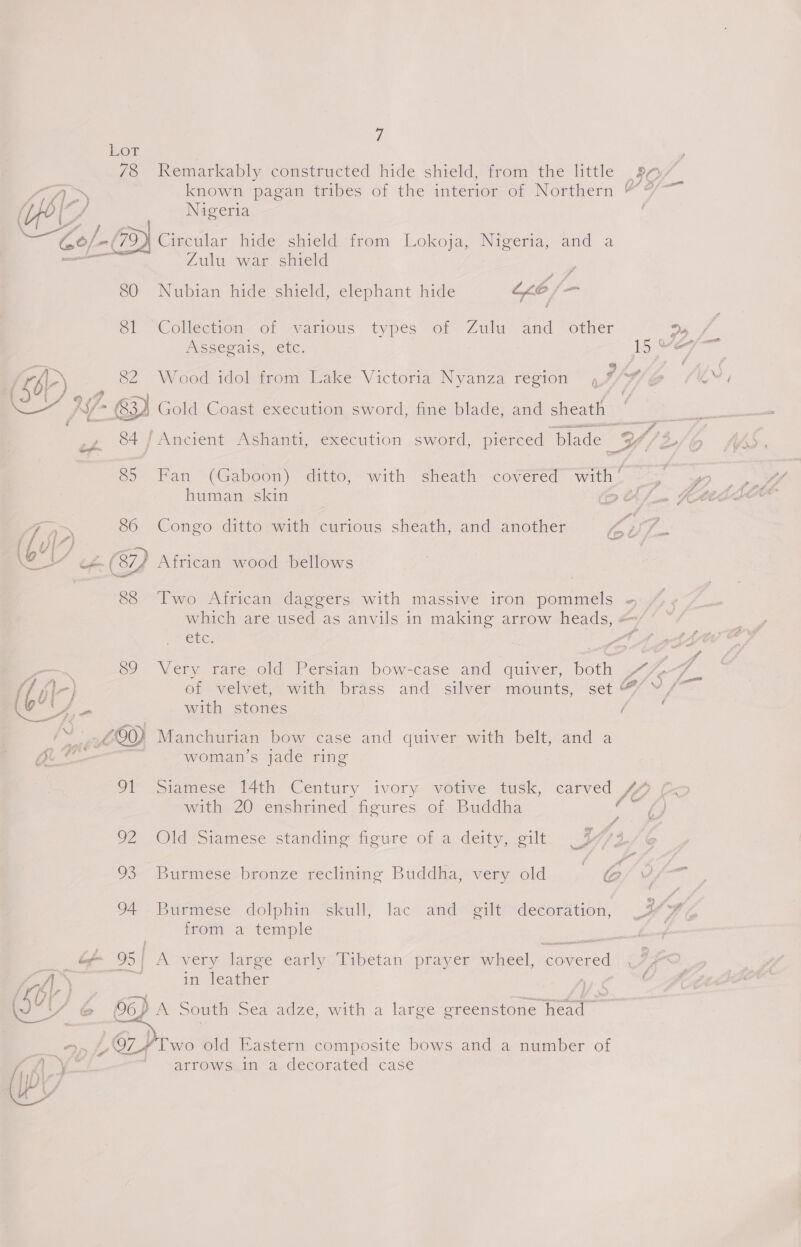 7
LOT
78 Remarkably constructed hide shield, from the little
known pagan tribes of the interior of Northern
Nigeria
(79) Circular hide shield from Lokoja, Nigeria, and a
Zulu war shield
80 Nubian hide shield, elephant hide
81 Collection of various types of Zulu and other
Assegais, etc. 15
82 Wood idol from Lake Victoria Nyanza region
(83) Gold Coast execution sword, fine blade, and sheath
84 Ancient Ashanti, execution sword, pierced blade
85 Fan (Gaboon) ditto, with sheath covered with
human skin
86 Congo ditto with curious sheath, and another
(87) African wood bellows
88 Two African daggers with massive iron pommels
which are used as anvils in making arrow heads,
etc.
89 Very rare old Persian bow-case and quiver, both
of velvet, with brass and silver mounts, set
with stones
(90) Manchurian bow case and quiver with belt, and a
woman's jade ring
91 Siamese 14th Century ivory votive tusk, carved
with 20 enshrined figures of Buddha
92 Old Siamese standing figure of a deity, gilt
93 Burmese bronze reclining Buddha, very old
94 Burmese dolphin skull, lac and gilt decoration,
from a temple
95 A very large early Tibetan prayer wheel, covered
in leather
96) A South Sea adze, with a large greenstone head
97 Two old Eastern composite bows and a number of
arrows in a decorated case